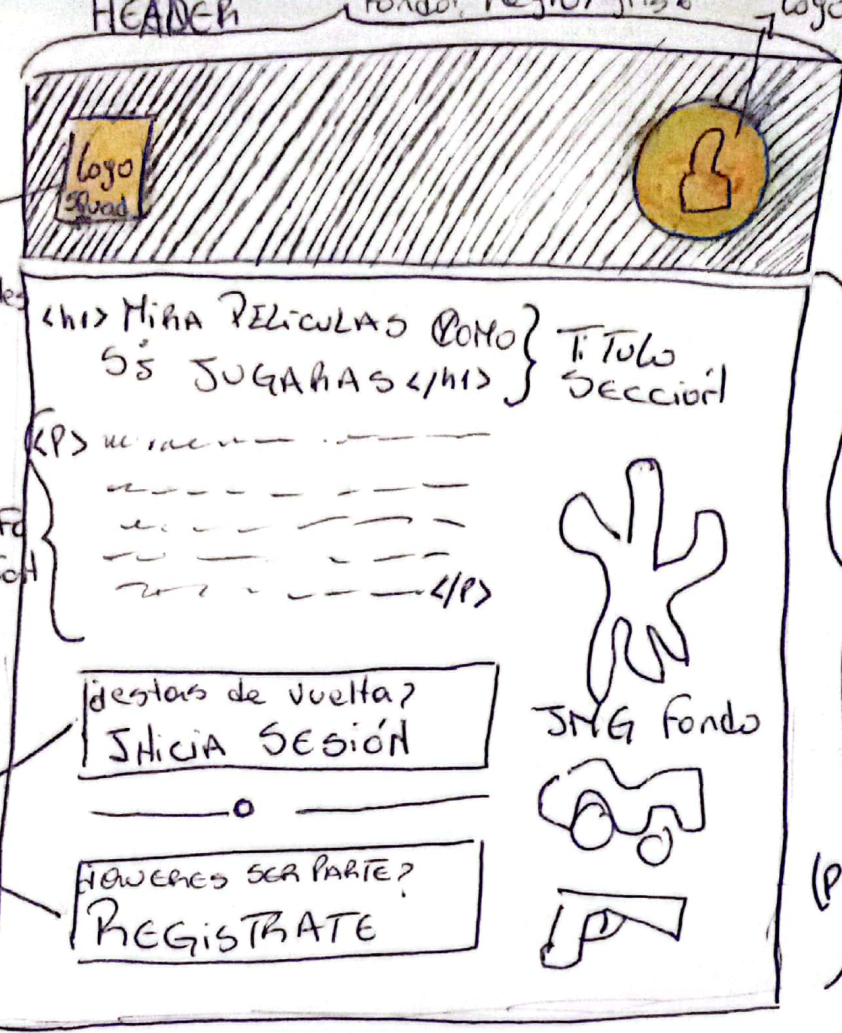 HEADER
Logo
Logo
Squad
<h1> MIRA PELÍCULAS COMO
SI JUGARAS </h1>
TITULO
SECCIÓN
<P>
</P>
¿estas de vuelta?
INICIA SESIÓN
IMG Fondo
¿QUERES SER PARTE?
REGISTRATE